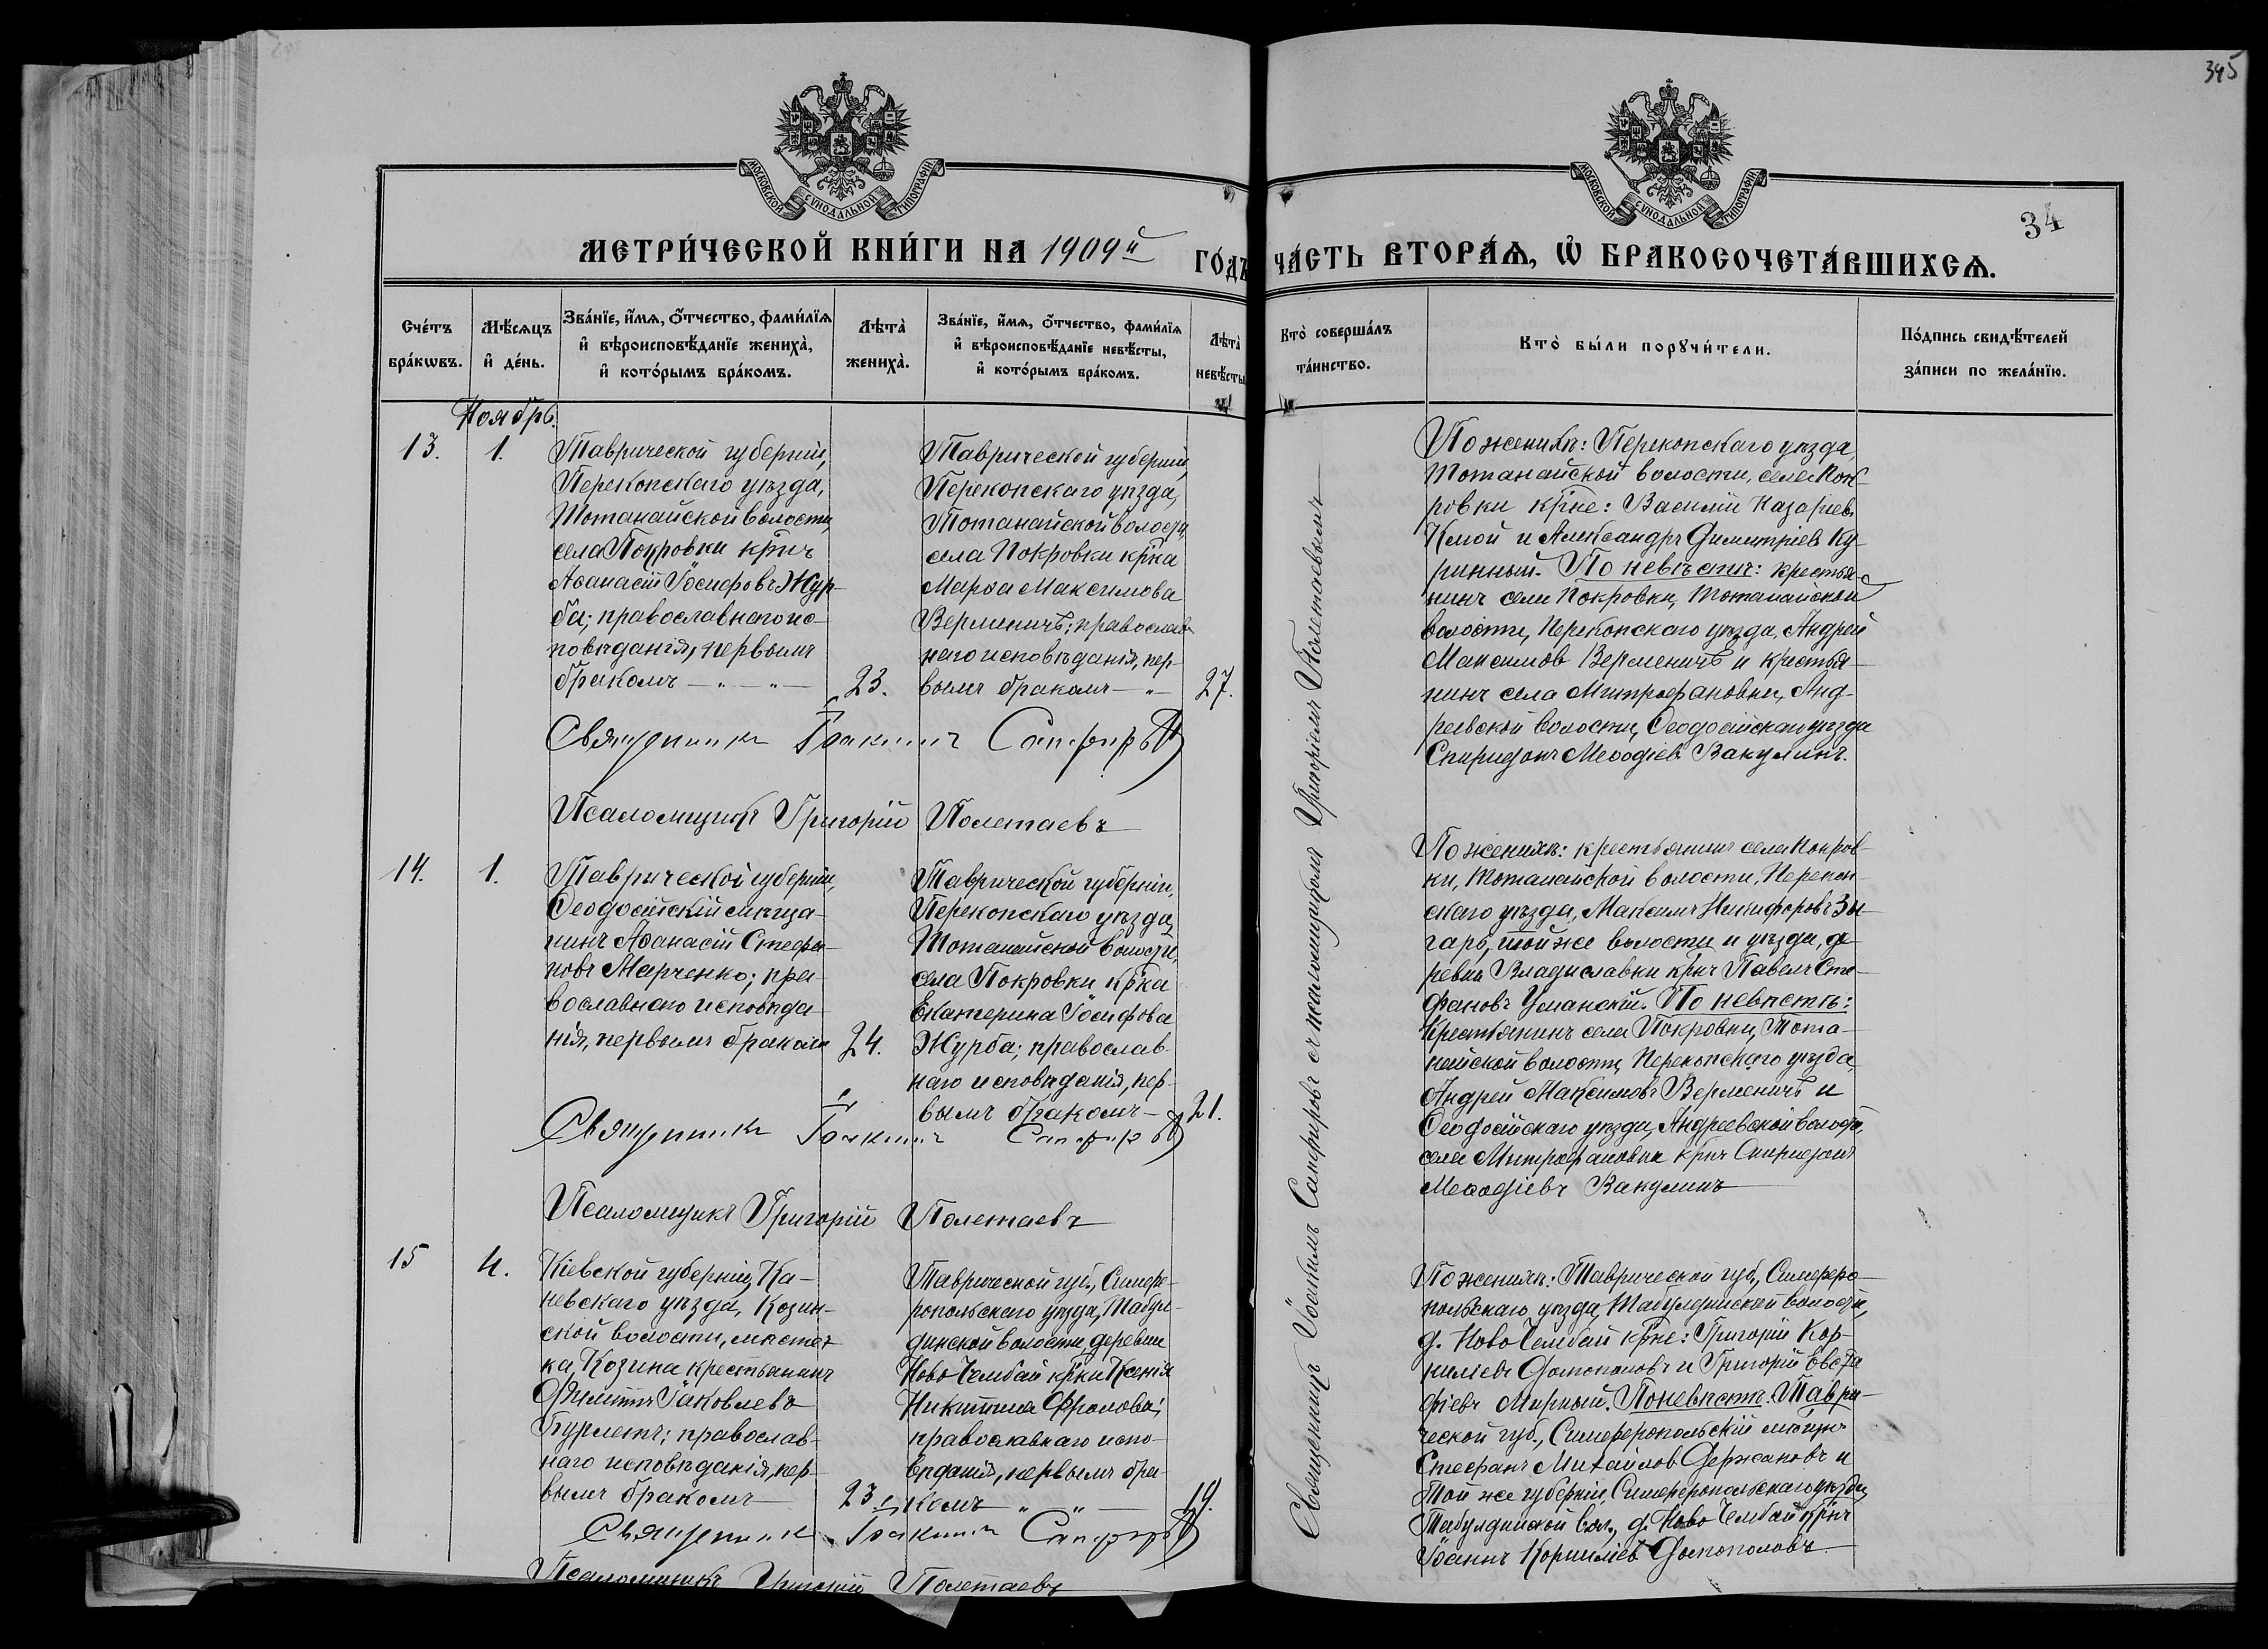 395
34
МОСКОВСКОЙ СѴНОДАЛЬНОЙ ТИПОГРАФІИ
МОСКОВСКОЙ СѴНОДАЛЬНОЙ ТИПОГРАФІИ
МЕТРИ́ЧЕСКОЙ КНИ́ГИ НА 1909й ГО́ДЪ
ЧА́СТЬ ВТОРА́Ѧ, Ѡ҆ БРАКОСОЧЕТА́ВШИХСѦ.
Сче́тъ бра́кѡвъ.
Мѣ́сѧцъ и҆ де́нь.
Зва́нїе, и҆́мѧ, ѻ҆́тчество, фами́лїѧ
и҆ вѣроисповѣ́данїе жениха̀,
и҆ кото́рымъ бра́комъ.
Лѣ́та̀ жениха̀.
Зва́нїе, и҆́мѧ, ѻ҆́тчество, фами́лїѧ
и҆ вѣроисповѣ́данїе невѣ́сты,
и҆ кото́рымъ бра́комъ.
Лѣ́та̀ невѣ́сты
Кто̀ соверша́лъ та́инство.
Кто̀ бы́ли порꙋчи́тели.
По́дпись свидѣ́телей
за́писи по жела́нїю.
Ноябрь.
13.
1.
Таврической губерніи,
Перекопскаго уѣзда,
Тотанайской волости,
села Покровки кр̃нъ
Аѳанасій Іосифовъ Жур-
ба; православнаго ис-
повѣданія, первымъ
бракомъ — „ — „ —
23.
Таврической губерніи,
Перекопскаго уѣзда,
Тотанайской волости,
села Покровки кр̃ка
Марѳа Максимова
Верменичъ; православ-
наго исповѣданія, пер-
вымъ бракомъ — „ —
27.
Священникъ Іоакимъ Сапфировъ
Псаломщикъ Григорій Полетаевъ
Священникъ Іоакимъ Сапфировъ съ псаломщикомъ Григоріемъ Полетаевымъ
По женихѣ: Перекопскаго уѣзда,
Тотанайской волости, села Пок-
ровки кр̃не: Василій Назаріевъ
Кмой и Александръ Димитріевъ Ку-
ринный. По невѣстѣ: крестья-
нинъ села Покровки, Тотанайской
волости, Перекопскаго уѣзда, Андрей
Максимовъ Верменичъ и крестья-
нинъ села Митрофановки, Анд-
реевской волости, Ѳеодосійскаго уѣзда
Спиридонъ Меѳодіевъ Вакулинъ.
14.
1.
Таврической губерніи,
Ѳеодосійскій мѣща-
нинъ Аѳанасій Стефа-
новъ Марченко; пра-
вославнаго исповѣда-
нія, первымъ бракомъ
24.
Таврической губерніи,
Перекопскаго уѣзда,
Тотанайской волости,
села Покровки кр̃ка
Екатерина Іосифова
Журба; православ-
наго исповѣданія, пер-
вымъ бракомъ —
21.
Священникъ Іоакимъ Сапфировъ
Псаломщикъ Григорій Полетаевъ
По женихѣ: крестьянинъ села Покров-
ки, Тотанайской волости, Перекоп-
скаго уѣзда, Максимъ Никифоровъ Зы-
гарь, той же волости и уѣзда, де-
ревни Владиславки кр̃нъ Павелъ Сте-
фановъ Уманскій. По невѣстѣ:
Крестьянинъ села Покровки, Тота-
найской волости, Перекопскаго уѣзда,
Андрей Максимовъ Верменичъ и
Ѳеодосійскаго уѣзда, Андреевской волости,
села Митрофановки кр̃нъ Спиридонъ
Меѳодіевъ Вакулинъ
15
4.
Кіевской губерніи, Ка-
невскаго уѣзда, Козин-
ской волости, мѣстеч-
ка Козина крестьянинъ
Филиппъ Іаковлевъ
Бурлетъ; православ-
наго исповѣданія, пер-
вымъ бракомъ —
23.
Таврической губ., Симфе-
ропольскаго уѣзда, Табул-
динской волости, деревни
Ново Челбай кр̃ки Ксенія
Никитина Фролова;
православнаго испо-
вѣданія, первымъ бра-
комъ „ „ —
19.
Священникъ Іоакимъ Сапфировъ
Псаломщикъ Григорій Полетаевъ
По женихѣ: Таврической губ., Симферо-
польскаго уѣзда, Табулдинской волости,
д. Ново Челбай кр̃не: Григорій Кор-
ниліевъ Домополовъ и Григорій Евста-
фіевъ Мирный. По невѣстѣ: Таври-
ческой губ., Симферопольскій мѣщ̃нъ
Стефанъ Михайловъ Держановъ и
Той же губерніи, Симферопольскаго уѣзда,
Табулдинской вол., д. Ново Челбай кр̃нъ
Іоаннъ Корниліевъ Домополовъ